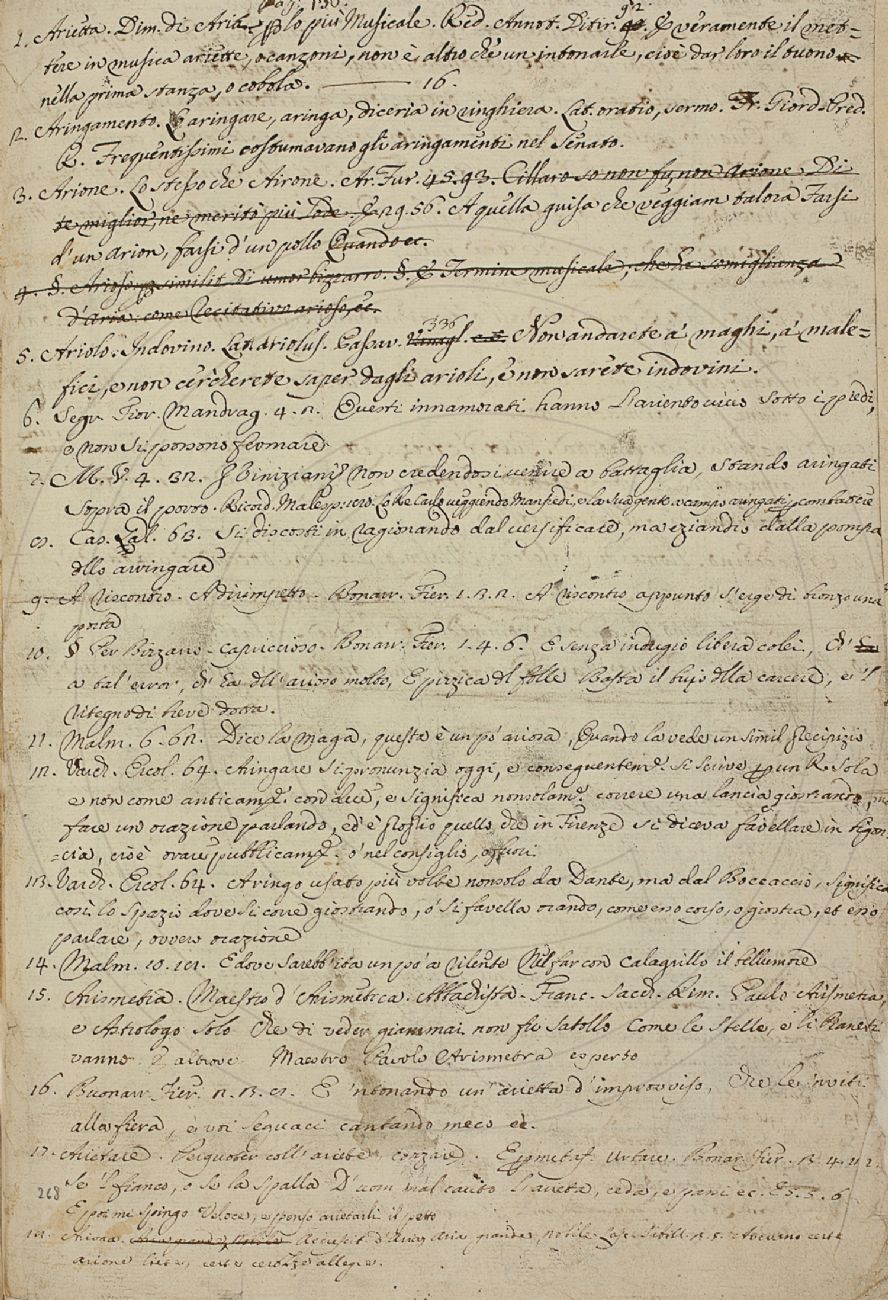 Pag. 130.
1. Arietta. Dim. di Aria più Musicale. Red. Annot. Ditir. 92. E veramente il met=
tere in musica ariette, o canzoni, non è altro che un intonarle, cioè dar loro il tuono
nella prima stanza, o cobola. 16.
2. Aringamento. L'aringare, aringa, diceria in ringhiera. Lat. oratio, sermo. Fr. Giord. Pred.
R. Frequentissimi costumavano gli aringamenti nel Senato.
3. Arione. Lo stesso che Airone. Ar. Fur. 45. 93. Cillaro so non fu, non Arione Di
te miglior, ne meritò più lode 29. 56. A quella guisa che veggiam talora Farsi
d'un Arion, farsi d'un pollo Quando ec.
4. §. Arioso, similit. Di umor bizzarro. §. E Termine musicale, che ha somiglianza
d'aria: come Recitativo arioso, ec.
5. Ariolo. Indovino. Lat. ariolus. Cassav. 336 Non andarete a' maghi, a' male=
fici, e non cercherete saper dagli arioli, e non sarete indovini.
6. Segr. Fior. Mandrag. 4. 2. Questi innamorati hanno l'ariento vivo sotto i piedi,
e non si possono fermare
7. M. V. 4. 32. I Viniziani non credendosi venire a battaglia, stando aringati
sopra il porto. Ricord. Malespini. Lo Re Carlo veggendo Manfredi, e la sua gente a campo aringati combattere
8. Cap. 63. Si discosti in ragionando dal versificare, ma eziandio dalla pompa
dello arringare
9. A riscontro. Adirimpetto. Bonarr. Fier. 1. 3. 2. A riscontro appunto s'erge di bronzo una
porta
10. § Per Bizzarro. Capriccioso. Bonarr. Fier. 1. 4. 6. E senza indugio libera colei, Ch'
a tal' error, ch' ha dell' arioso molto, E pizzica del folle Basta il bujo della carcere, e 'l
ritegno di breve dotta.
11. Malm. 6. 62. Dice la maga, questa è un pò ariosa, Quando la vede un simil precipizio
12. Varch. Ercol. 64. Aringare si pronunzia oggi, e conseguentem. si scrive p. un R. sola
e non come anticam. con due, e significa non solam. correre una lancia giostrando,
fare un orazione parlando, ed è proprio quello, che in Firenze si diceva favellare in bigon
=cia, cioè orare pubblicam. o nel consiglio, o fuori
13. Varch. Ercol. 64. Aringo usato più volte non solo da Dante, ma dal Boccaccio, significa
così lo spazio dove si corre giostrando, o si favella orando, come esso corso, o giostra, et esso
parlare, ovvero orazione
14. Malm. 10. E dove sarebb'ita un pò a rilente Nel far con Calagrillo il bellumore
15. Arismetra. Maestro d'Arismetica. Abbachista. Franc. Sacch. Rim. Paulo Arismetra,
e Astrologo solo Che di veder giammai non fu satollo Come le stelle, e li Pianeti
vanno. E altrove Maestro Pavolo Arismetra esperto
16. Buonarr. Fier. 2. 3. E 'ntonando un arietta d'improvviso, Che le 'nviti
alla fiera, e voi seguaci cantando meco ec.
17. Arietare. Percuoter coll' ariete, cozzare. E p. metaf. Urtare. Bonar. Fier. 3. 4.
Se 'l fianco, o se la spalla D'uom mal cauto l'arieta, ceda, e passi ec. E 5. 3. 6
E poi mi spingo veloce, e posso arietarli il petto
268
certe cervelze allegre.